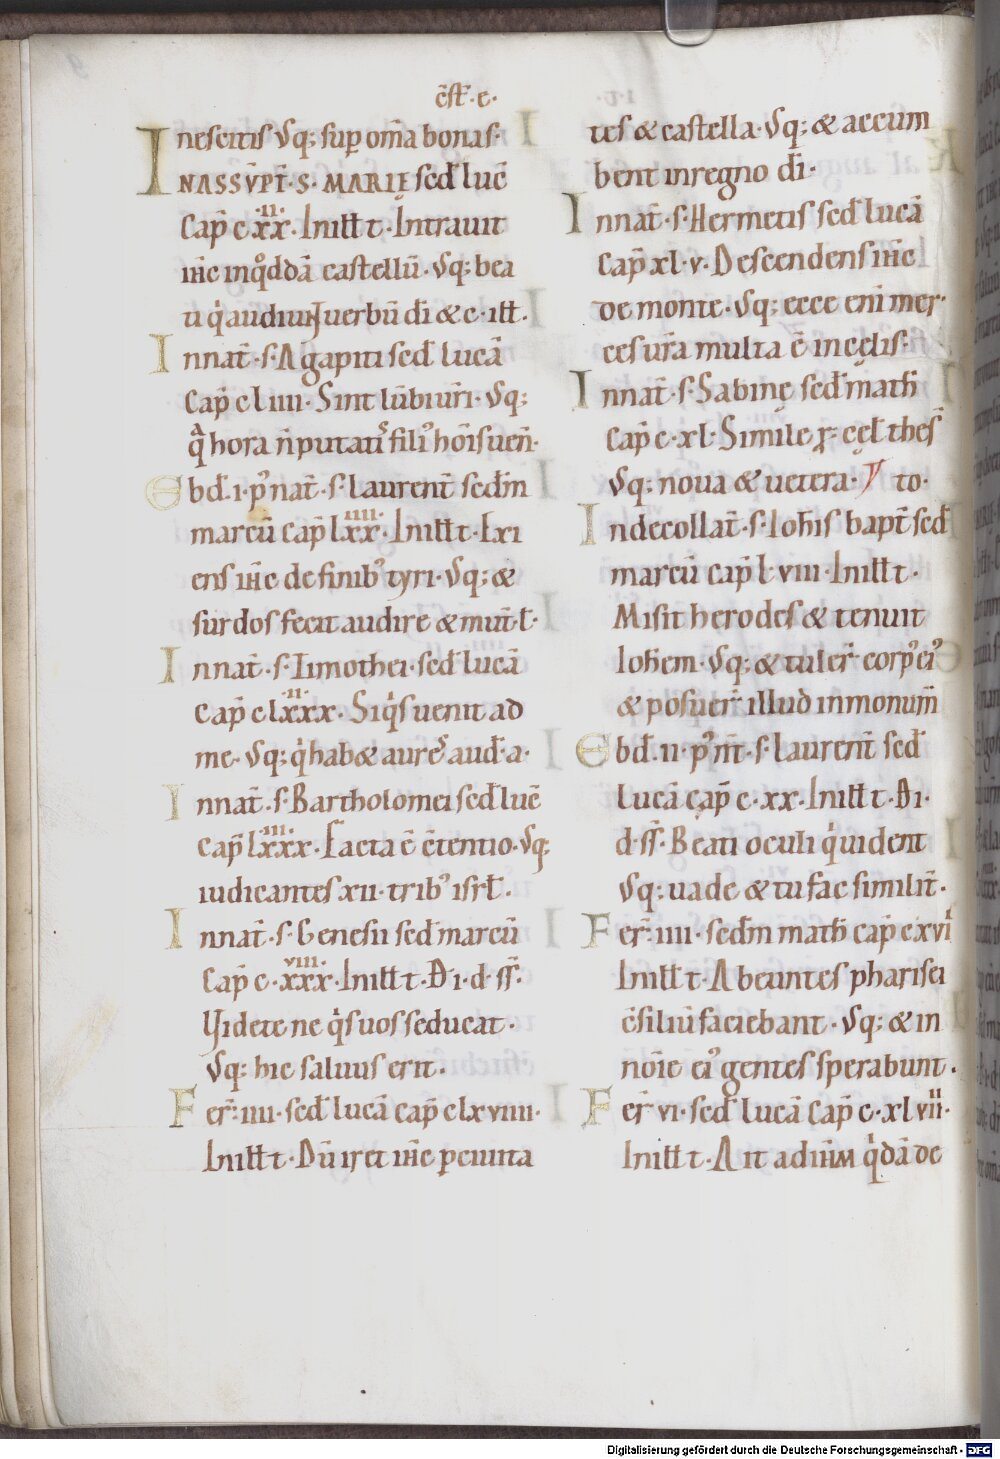 c̄st̄·e·
nescitis Vsq; sup om̄a bonas·
IN ASSVPT̄·S·MARIE sed̄ luc̄
Cap̄ c xx·iii· In ill t· Intrauit
ih̄c in q̊ddā castellū·Vsq; bea
ti q̇ audiunt uerbū dī & c·ill·
In nat̄·s·Agapiti sed̄ lucā
Cap̄ c l iiii·Sint lūbi ur̄i·Vsq;
q̄ hora n̄ putatis fili᾽ hōis uen̄·
Ebd̄·i·p᾽ nat̄·s·laurent̄ sed̄m
marcū cap̄ lxx·iiii· In ill t·Exi
ens ih̄c de finib᾽ tyri·Vsq; &
surdos fecit audire & mut̄·l·
In nat̄·s·Timothei·sed̄ lucā
Cap̄ clxxx·ii· Siq̇s uenit ad
me·Vsq; q̇ hab& aures aud̄·a·
In nat̄·s·Bartholomei sed̄ luc̄
Cap̄ lxxx·iii· Facta ē c̄tentio·Vsq;
iudicantes xii·trib᾽ isrl̄·
In nat̄·s·Genesii sed̄ marcū
Cap̄ c·xxx·viii· In ill t·Di·d·ss̄·
Videte ne q̇s uos seducat·
Vsq; hic saluus erit·
Fer̄·iiii·sed̄ lucā cap̄ clxviiii·
In ill t·Dū iret ih̄c p ciuita
tes & castella·Vsq; & accum
bent in regno dī·
In nat̄·s·Hermetis sed̄ lucā
Cap̄ xl·v·Descendens ih̄c
de monte·Vsq; ecce eni mer·
ces ur̄a multa ē in cęlis·
In nat̄·s·Sabinę sed̄ math̄
Cap̄ c·xl·Simile ę̄ ręg cęl thes̄
Vsq; noua & uetera· V to·
In decollat̄·s·Ioh̄is bapt̄ sed̄
marcū cap̄ l viii· In ill t·
Misit herodes & tenuit
Ioh̄em·Vsq; & tuler̄ corp᾽ ei᾽
& posuer̄ illud in monum̄
Ebd̄·ii·p᾽ n̄t̄·s·laurent̄ sed̄
Lucā cap̄ c·xx· In ill t·Di·
d·ss̄·Beati oculi q̇ uident
Vsq; uade & tu fac similit̄·
Fer̄·iiii·sed̄m math̄ cap̄ cxvi
In ill t·Abeuntes pharisei
c̄siliū faciebant·Vsq; & in
nōie ei᾽ gentes sperabunt·
Fer̄ vi·sed̄ lucā cap̄ c·xlvii·
In ill t·Ait ad ih̄m q̇dā de
Digitalisierung gefördert durch die Deutsche Forschungsgemeinschaft - DFG